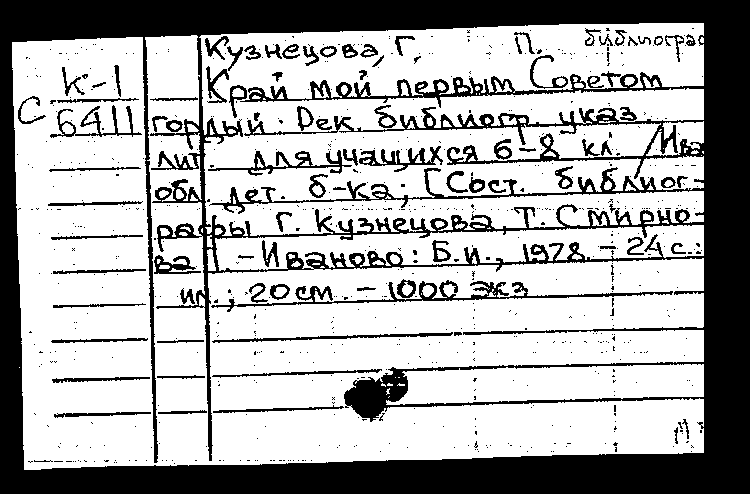 Кузнецова, Г. П. библиограф
К-1
С 6411
Край мой, первым Советом
гордый: Рек. библиогр. указ.
лит. для учащихся 6-8 кл. / Ива
обл. дет. б-ка; [Сост. библиог-
рафы Г. Кузнецова, Т. Смирно-
ва]. - Иваново: Б.и., 1978. - 24 с.:
ил.; 20 см. - 1000 экз